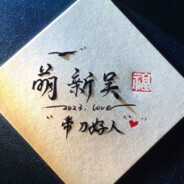 萌新吴
2023. love
"带刀好人"
福